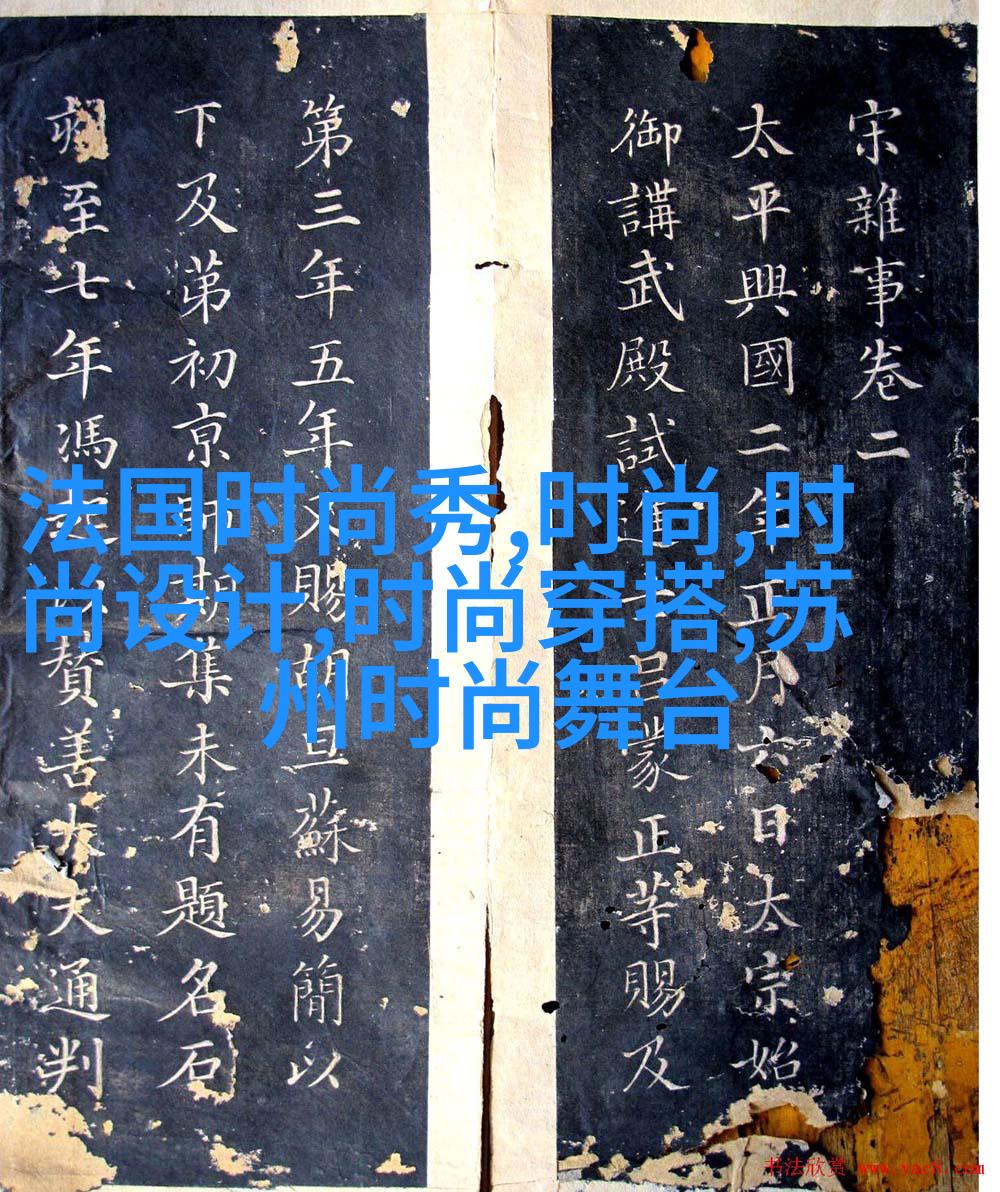 宋雜事卷二
太平興國二年正月六日太宗始
御講武殿試進士呂蒙正等賜及
第三年五年又賜胡旦蘇易簡以
下及第初京師期集未有題名石
刻至七年馮起以賛善大夫通判
法国时尚秀,时尚,时
尚设计,时尚穿搭,苏
州时尚舞台
书法欣赏 www.yac8.com